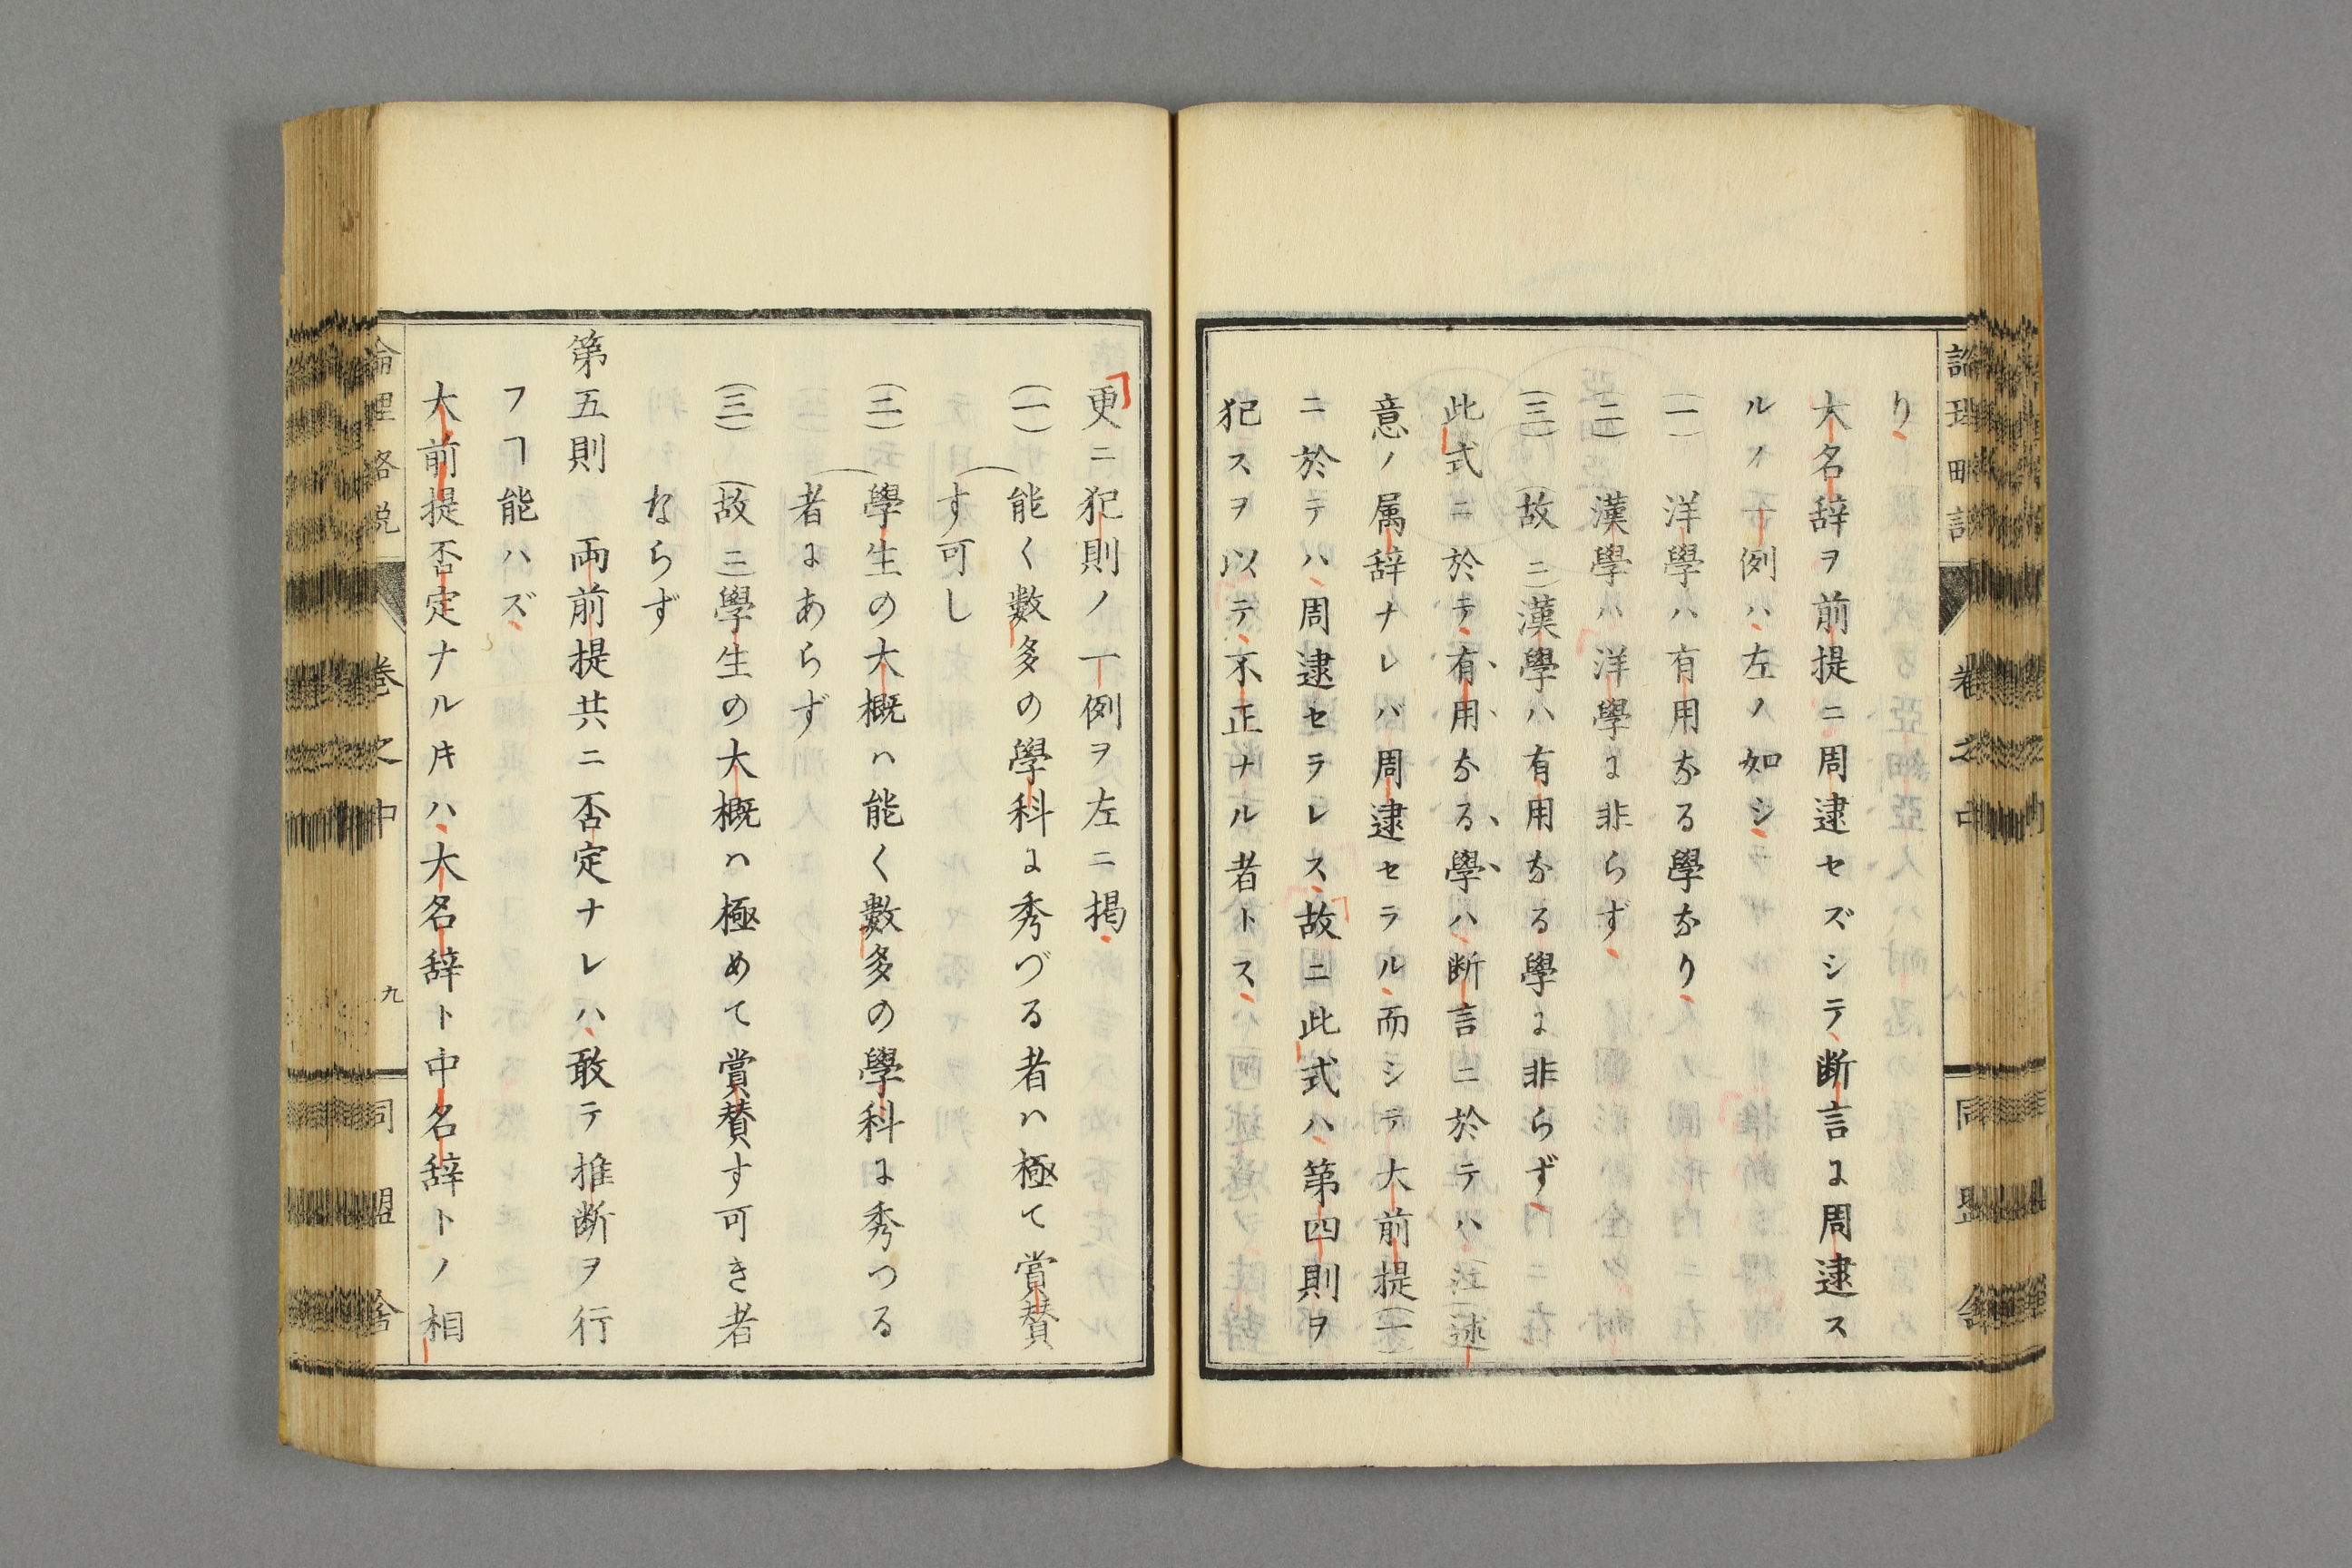 り
大名辞ヲ前提ニ周逮セズシテ断言ょ周逮ス
ルノ否例ハ左ノ如シ
(一)洋學ハ有用なる學なり
(二)漢學ハ洋學ょ非らず
(三)(故ニ)漢學ハ有用なる學ょ非らず
此式ニ於テ有用なる學ハ断言ニ於テハ(註)述
意ノ属辞ナレバ周逮セラル而シテ大前提(一)
ニ於テハ周逮セラレス故ニ此式ハ第四則ヲ
犯スヲ以テ不正ナル者トス
更ニ犯則ノ一例ヲ左ニ掲
(一)能く數多の學科ょ秀づる者ハ極て賞賛
す可し
(二)學生の大概ハ能く數多の學科ょ秀つる
者ょあらず
(三)(故ニ)學生の大概ハ極めて賞賛す可き者
ならず
第五則 両前提共ニ否定ナレハ敢テ推断ヲ行
フヿ能ハズ
大前提否定ナル𪜈ハ大名辞ト中名辞トノ相
論理略説 巻之中 九 同盟舎